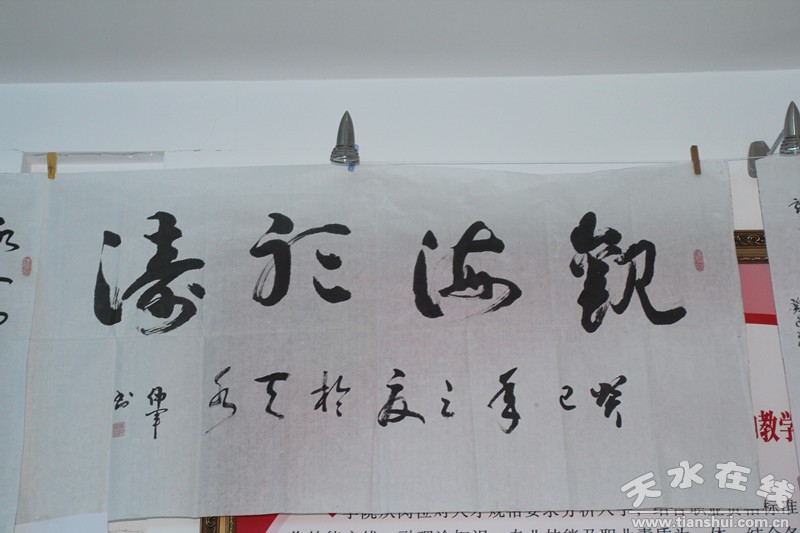 觀海聽濤
癸巳年之夏於天水
偉軍書
教学
天水在线
www.tianshui.com.cn
标准